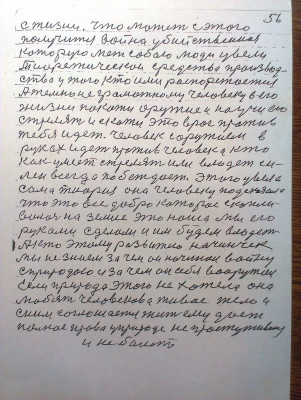 56
с жизни. Что может с этого
получится война убийственная
которую меж собою люди увели
Теоретическое средство производ-
ство у того кто им распоряжается
А темному неграмотному человеку в его
жизни покажи оружие и научи его
стрелять и скажи это враг против
тебя идет. Человек с оружием в
руках идет против человека кто
как умеет стрелять или владеет си-
лен всегда побеждает. Этого увела
сама теория она человеку подсказала
что это все добро которое скопи-
лось на земле это наша мы его
руками сделали и им будем владеть.
А кто этому развитию начинчек
мы не знаем зачем он начинал войну
с природою и зачем он себя вооружил
Сели природа этого не хотела она
любит человекова живое тело и
с ним соглашается жить ему дает
полное права у природе не простуживать
и не болеть